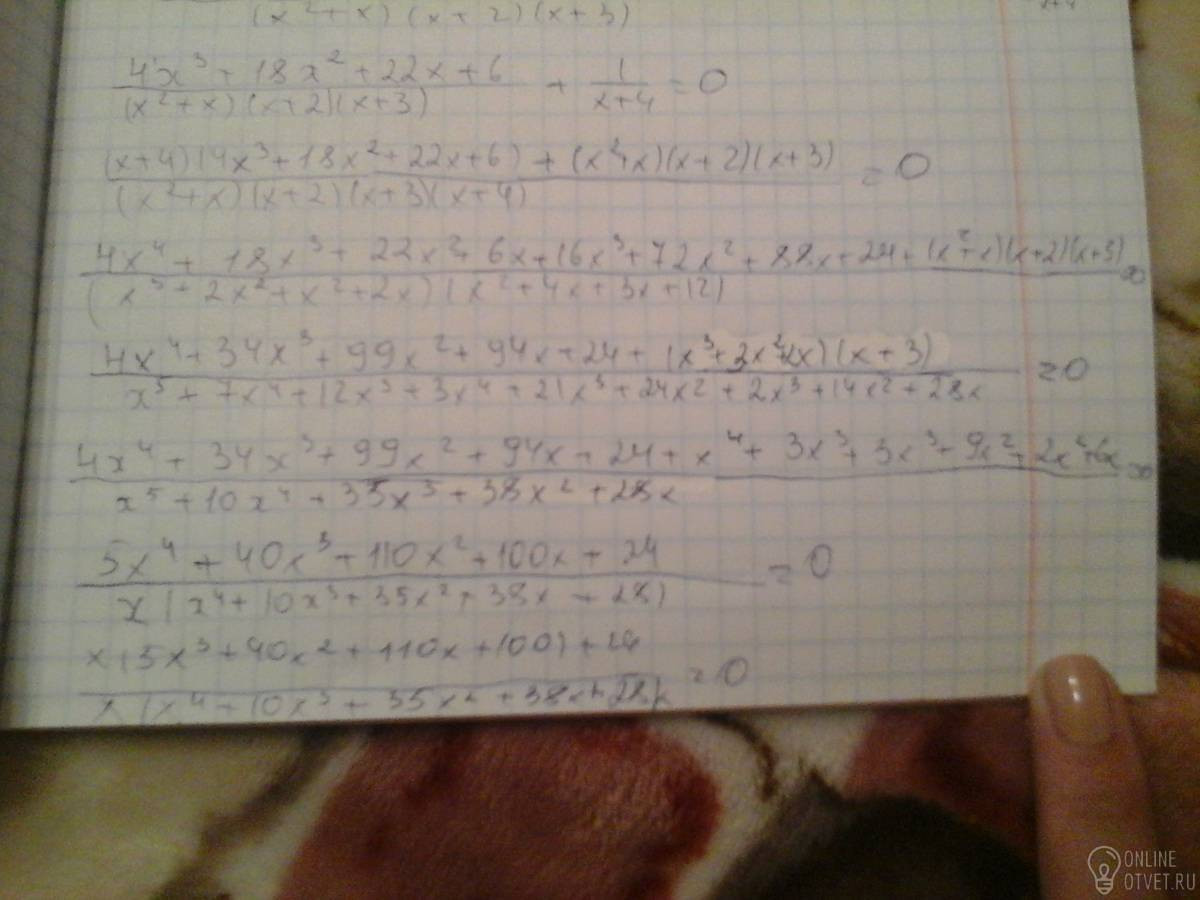 (x²+x)(x+2)(x+3)
x+4
4x³+18x²+22x+6 / (x²+x)(x+2)(x+3) + 1 / x+4 = 0
(x+4)(4x³+18x²+22x+6)+(x²+x)(x+2)(x+3) / (x²+x)(x+2)(x+3)(x+4) = 0
4x⁴+18x³+22x²+6x+16x³+72x²+88x+24+(x²+x)(x+2)(x+3) / (x³+2x²+x²+2x)(x²+4x+3x+12) =0
4x⁴+34x³+99x²+94x+24+(x³+3x²+2x)(x+3) / x⁵+7x⁴+12x³+3x⁴+21x³+24x²+2x³+14x²+28x =0
4x⁴+34x³+99x²+94x+24+x⁴+3x³+3x³+9x²+2x²+6x / x⁵+10x⁴+35x³+38x²+28x =0
5x⁴+40x³+110x²+100x+24 / x(x⁴+10x³+35x²+38x+28) = 0
x(5x³+40x²+110x+100)+24 / x(x⁴+10x³+35x²+38x+28) = 0
ONLINE
OTVET.RU